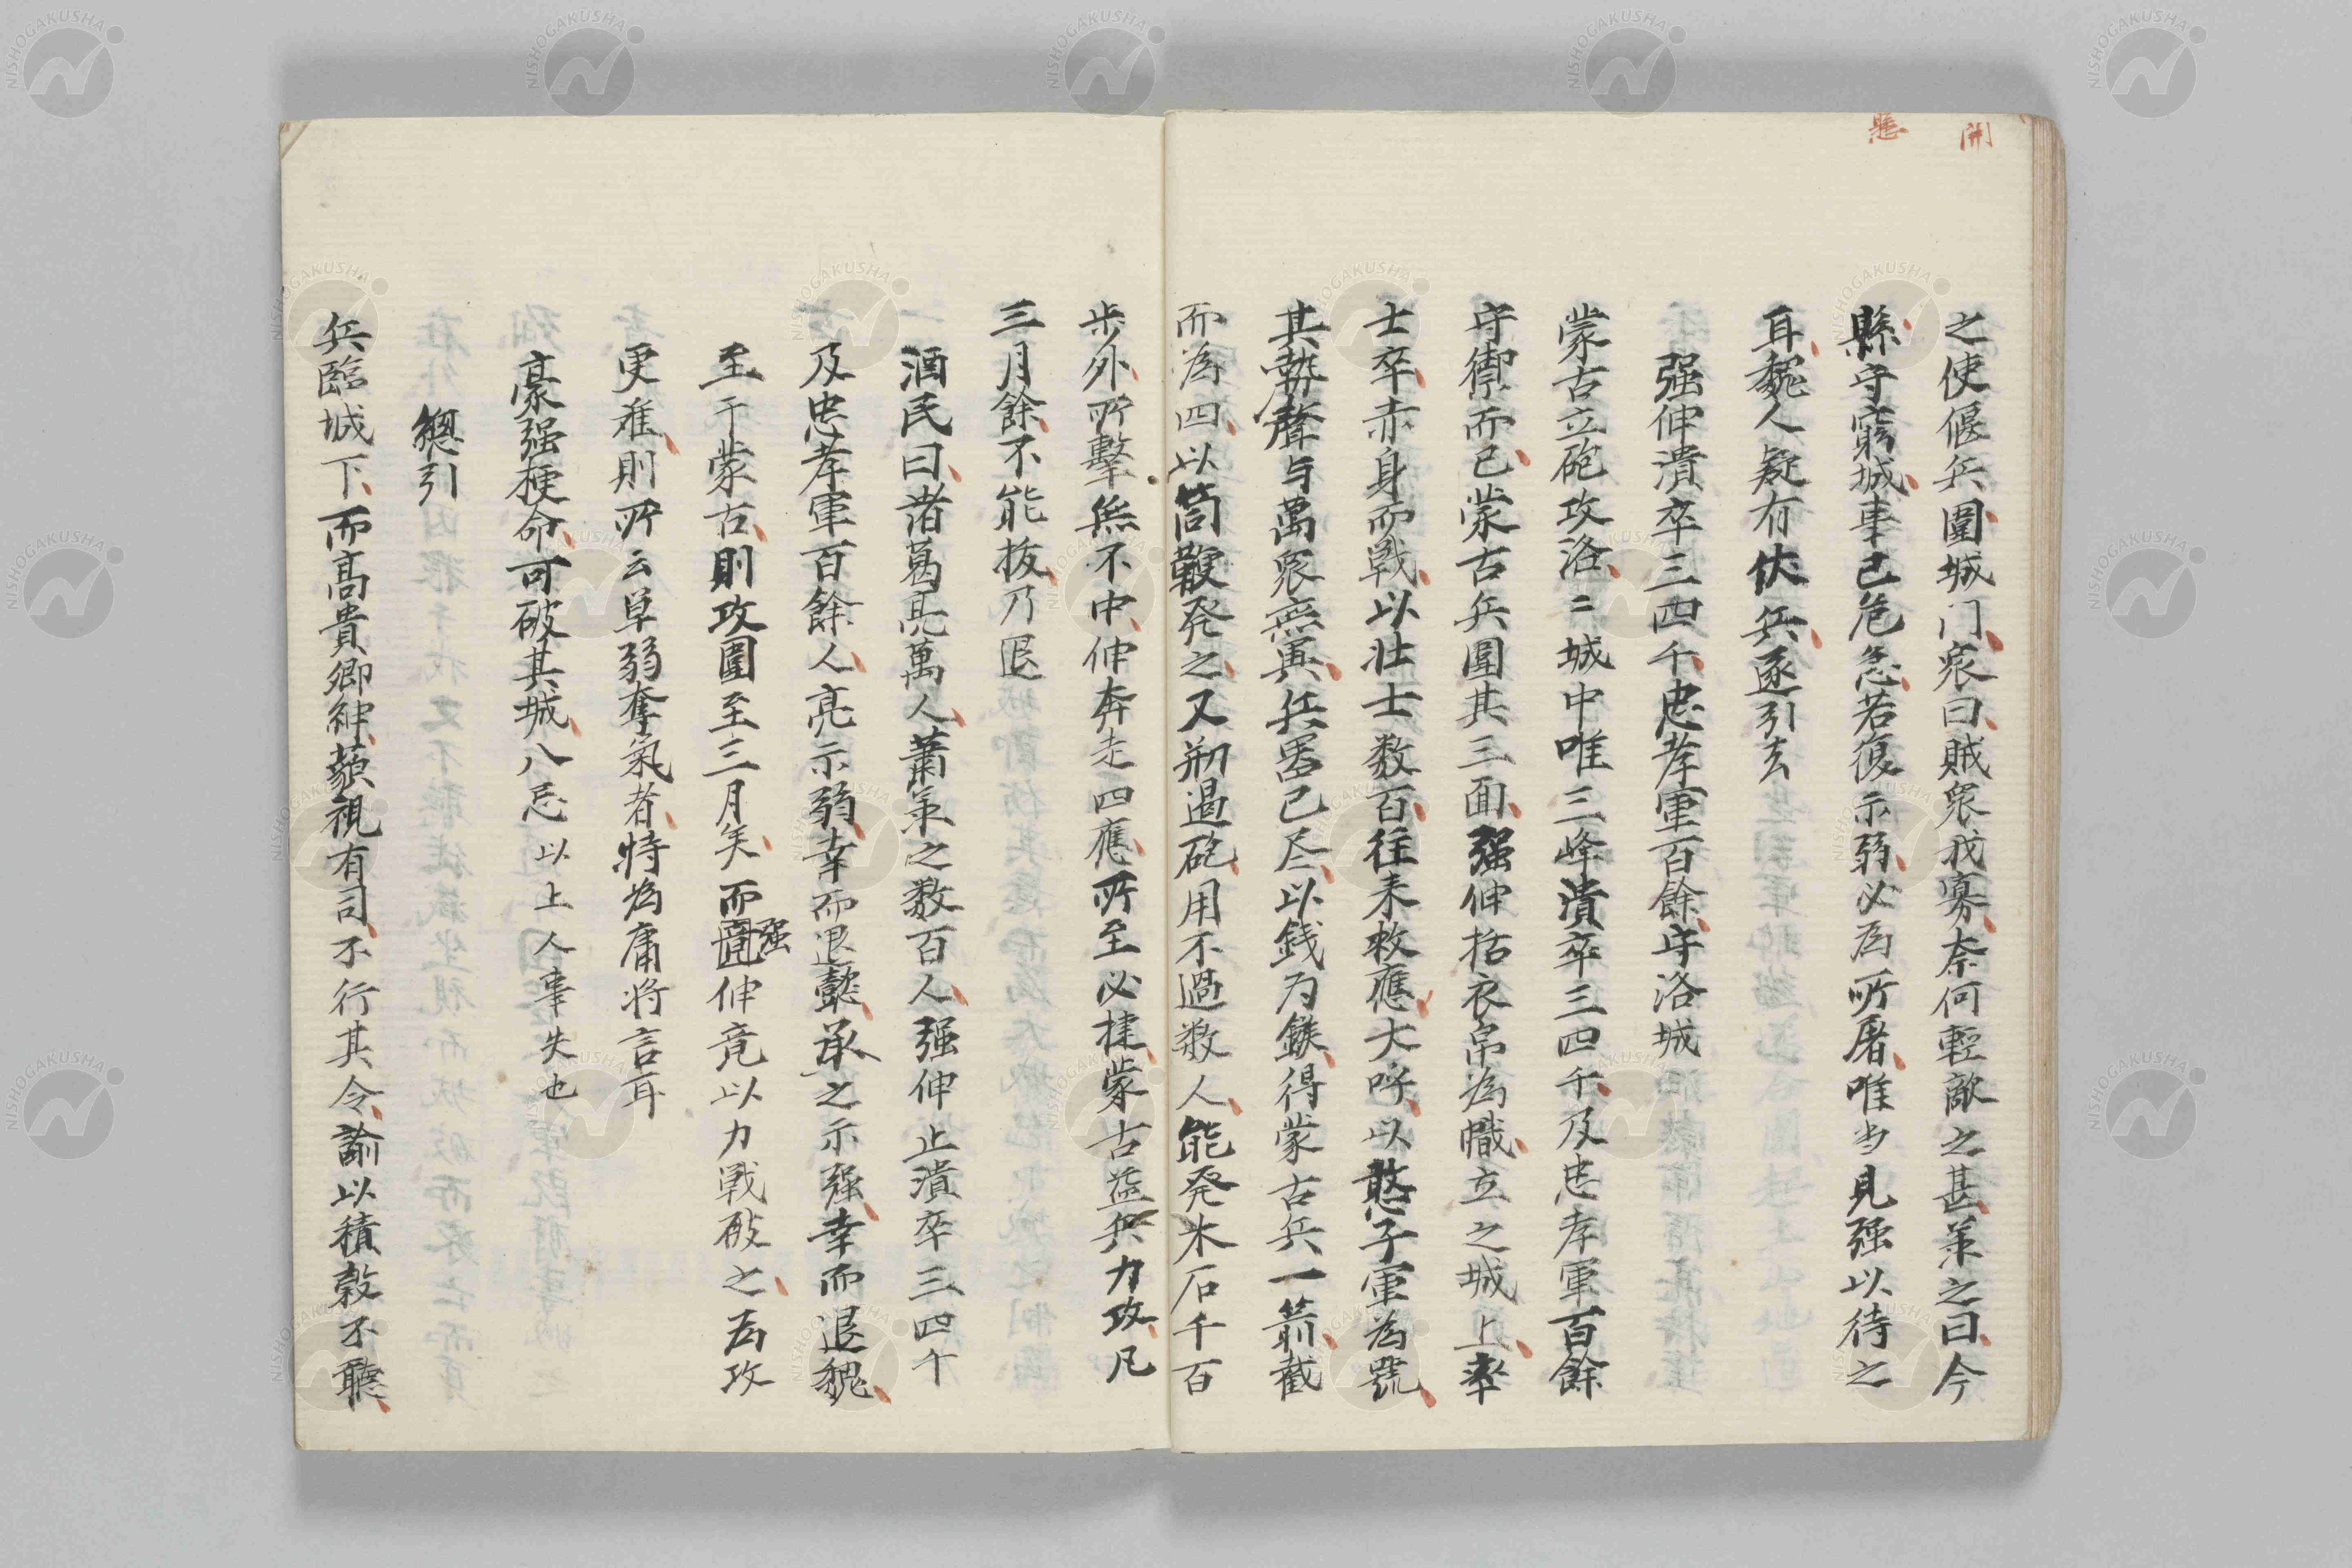 開
懸
之使偃兵圍城门衆曰賊衆我寡奈何輕敵之甚策之曰今
縣守窮城事已危急若復示弱必為所屠唯当見强以待之
耳魏人疑有伏兵遂引去
强伸潰卒三四千忠孝軍百餘守洛城
蒙古立砲攻洛〻城中唯三峰潰卒三四千及忠孝軍百餘
守禦而已蒙古兵圍其三面强伸括衣帛為幟立之城上率
士卒赤身而戦以壮士数百往来救應大呼以憨子軍為號
其勢聲与萬衆無異兵噐已尽以銭为鏃得蒙古兵一箭截
而為四以筒鞭発之又刱遏砲用不過数人能発大石千百
步外所擊無不中伸奔走四應所至必捷蒙古益兵力攻凡
三月餘不能拔乃退
酒民曰諸葛亮萬人蕭策之数百人强伸止潰卒三四千
及忠孝軍百餘人亮示弱幸而退懿承之示强幸而退魏
至于蒙古則攻圍至三月矣而强伸竟以力戰破之為攻
更难則所云單弱奪氣者特為庸将言耳
豪强梗命可破其城八忌以上人事失也
總引
兵臨城下而髙貴卿紳藐視有司不行其令諭以積穀不聽
NISHOGAKUSHA